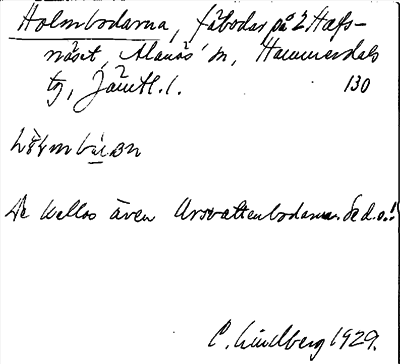 Holmbodarna, fäbodar på 2 Hafs-
näset, Alanäs' sn, Hammerdals
tg, Jämtl. l. 130
De kallas även Arsvattenbodarna. Se d.o.!
C. Lindberg 1929.